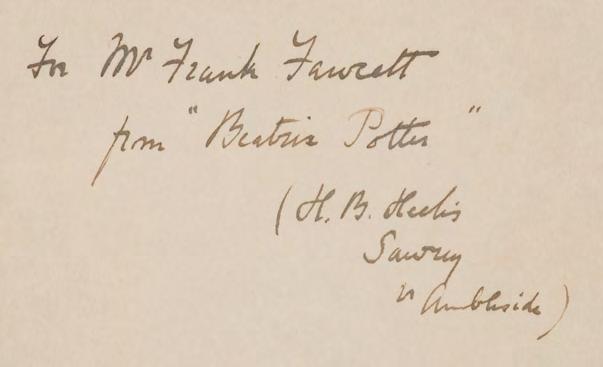 For Mr Frank Fawcett
from "Beatrix Potter"
(H. B. Heelis
Sawrey
nr Ambleside)